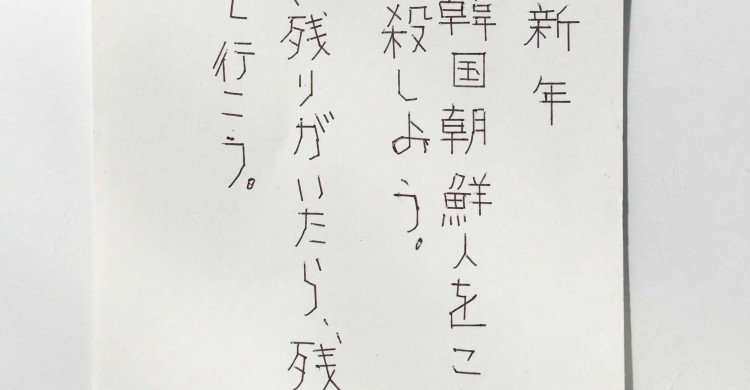 新年
韓国朝鮮人をこ
殺しよう。
残りがいたら、残
行こう。